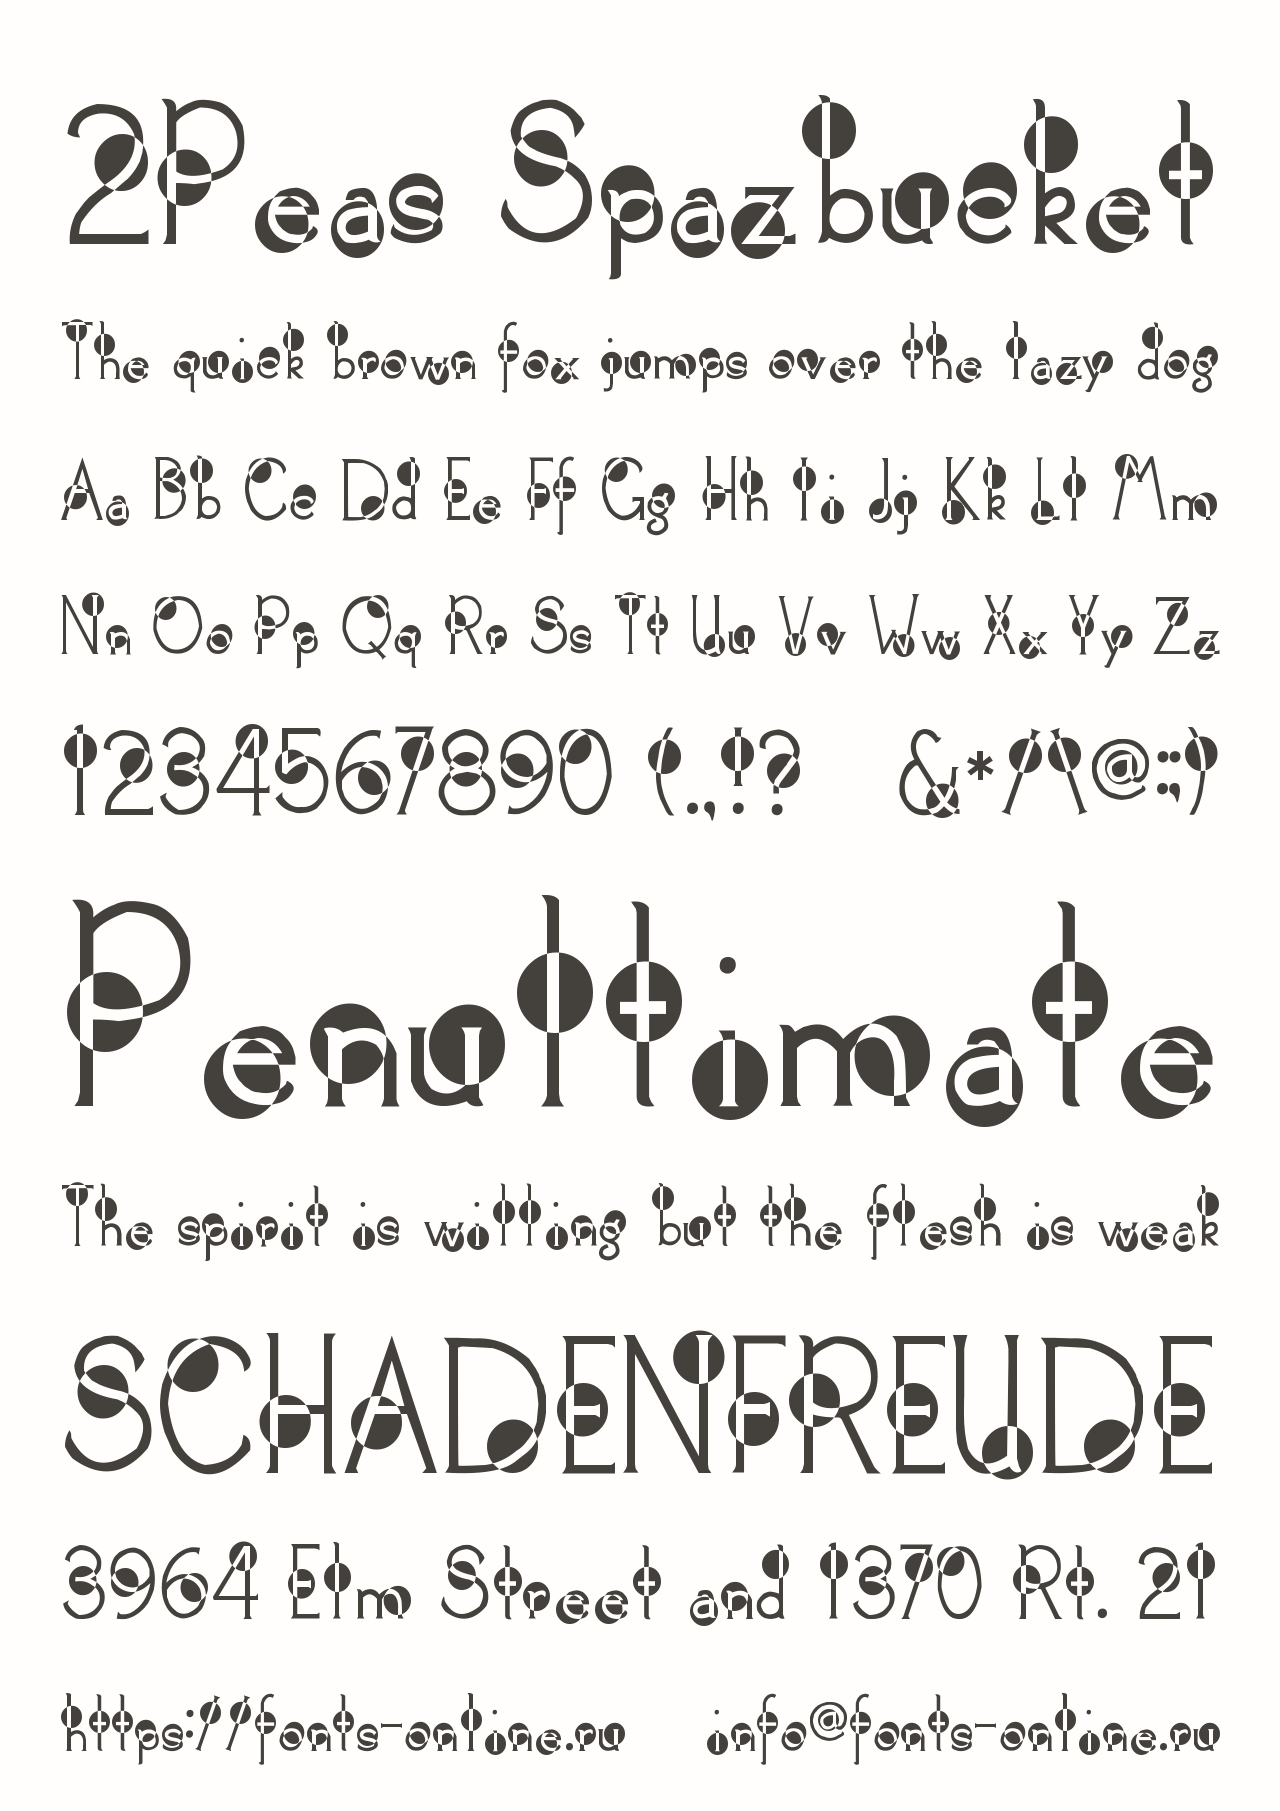 2Peas Spazbucket
The quick brown fox jumps over the lazy dog
Aa Bb Cc Dd Ee Ff Gg Hh Ii Jj Kk Ll Mm
Nn Oo Pp Qq Rr Ss Tt Uu Vv Ww Xx Yy Zz
1234567890 (.,!? &*/\@:;)
Penultimate
The spirit is willing but the flesh is weak
SCHADENFREUDE
3964 Elm Street and 1370 Rt. 21
https://fonts-online.ru info@fonts-online.ru